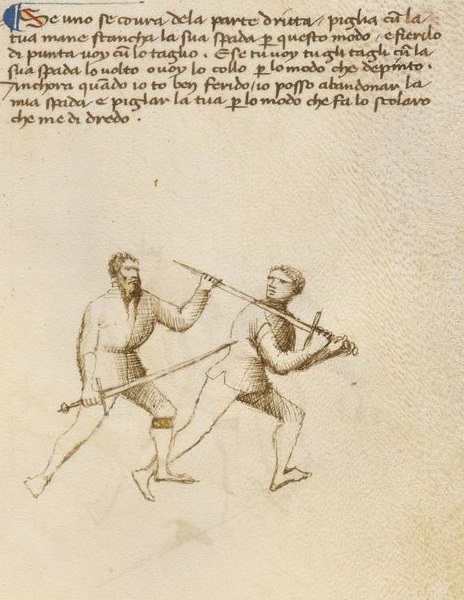 Se uno se covra dela parte dritta / piglia cū la
tua mane stancha la sua spada p questo modo / e fierilo
di punta uoy cū lo taglio. E se tu uoy tu gli tagli cū la
sua spada lo uolto o uoy lo collo p lo modo che depinto.
Anchora quādo io to ben ferido / io posso abandonar la
mia spada e pigliar la tua p lo modo che fa lo scolaro
che me di dredo.